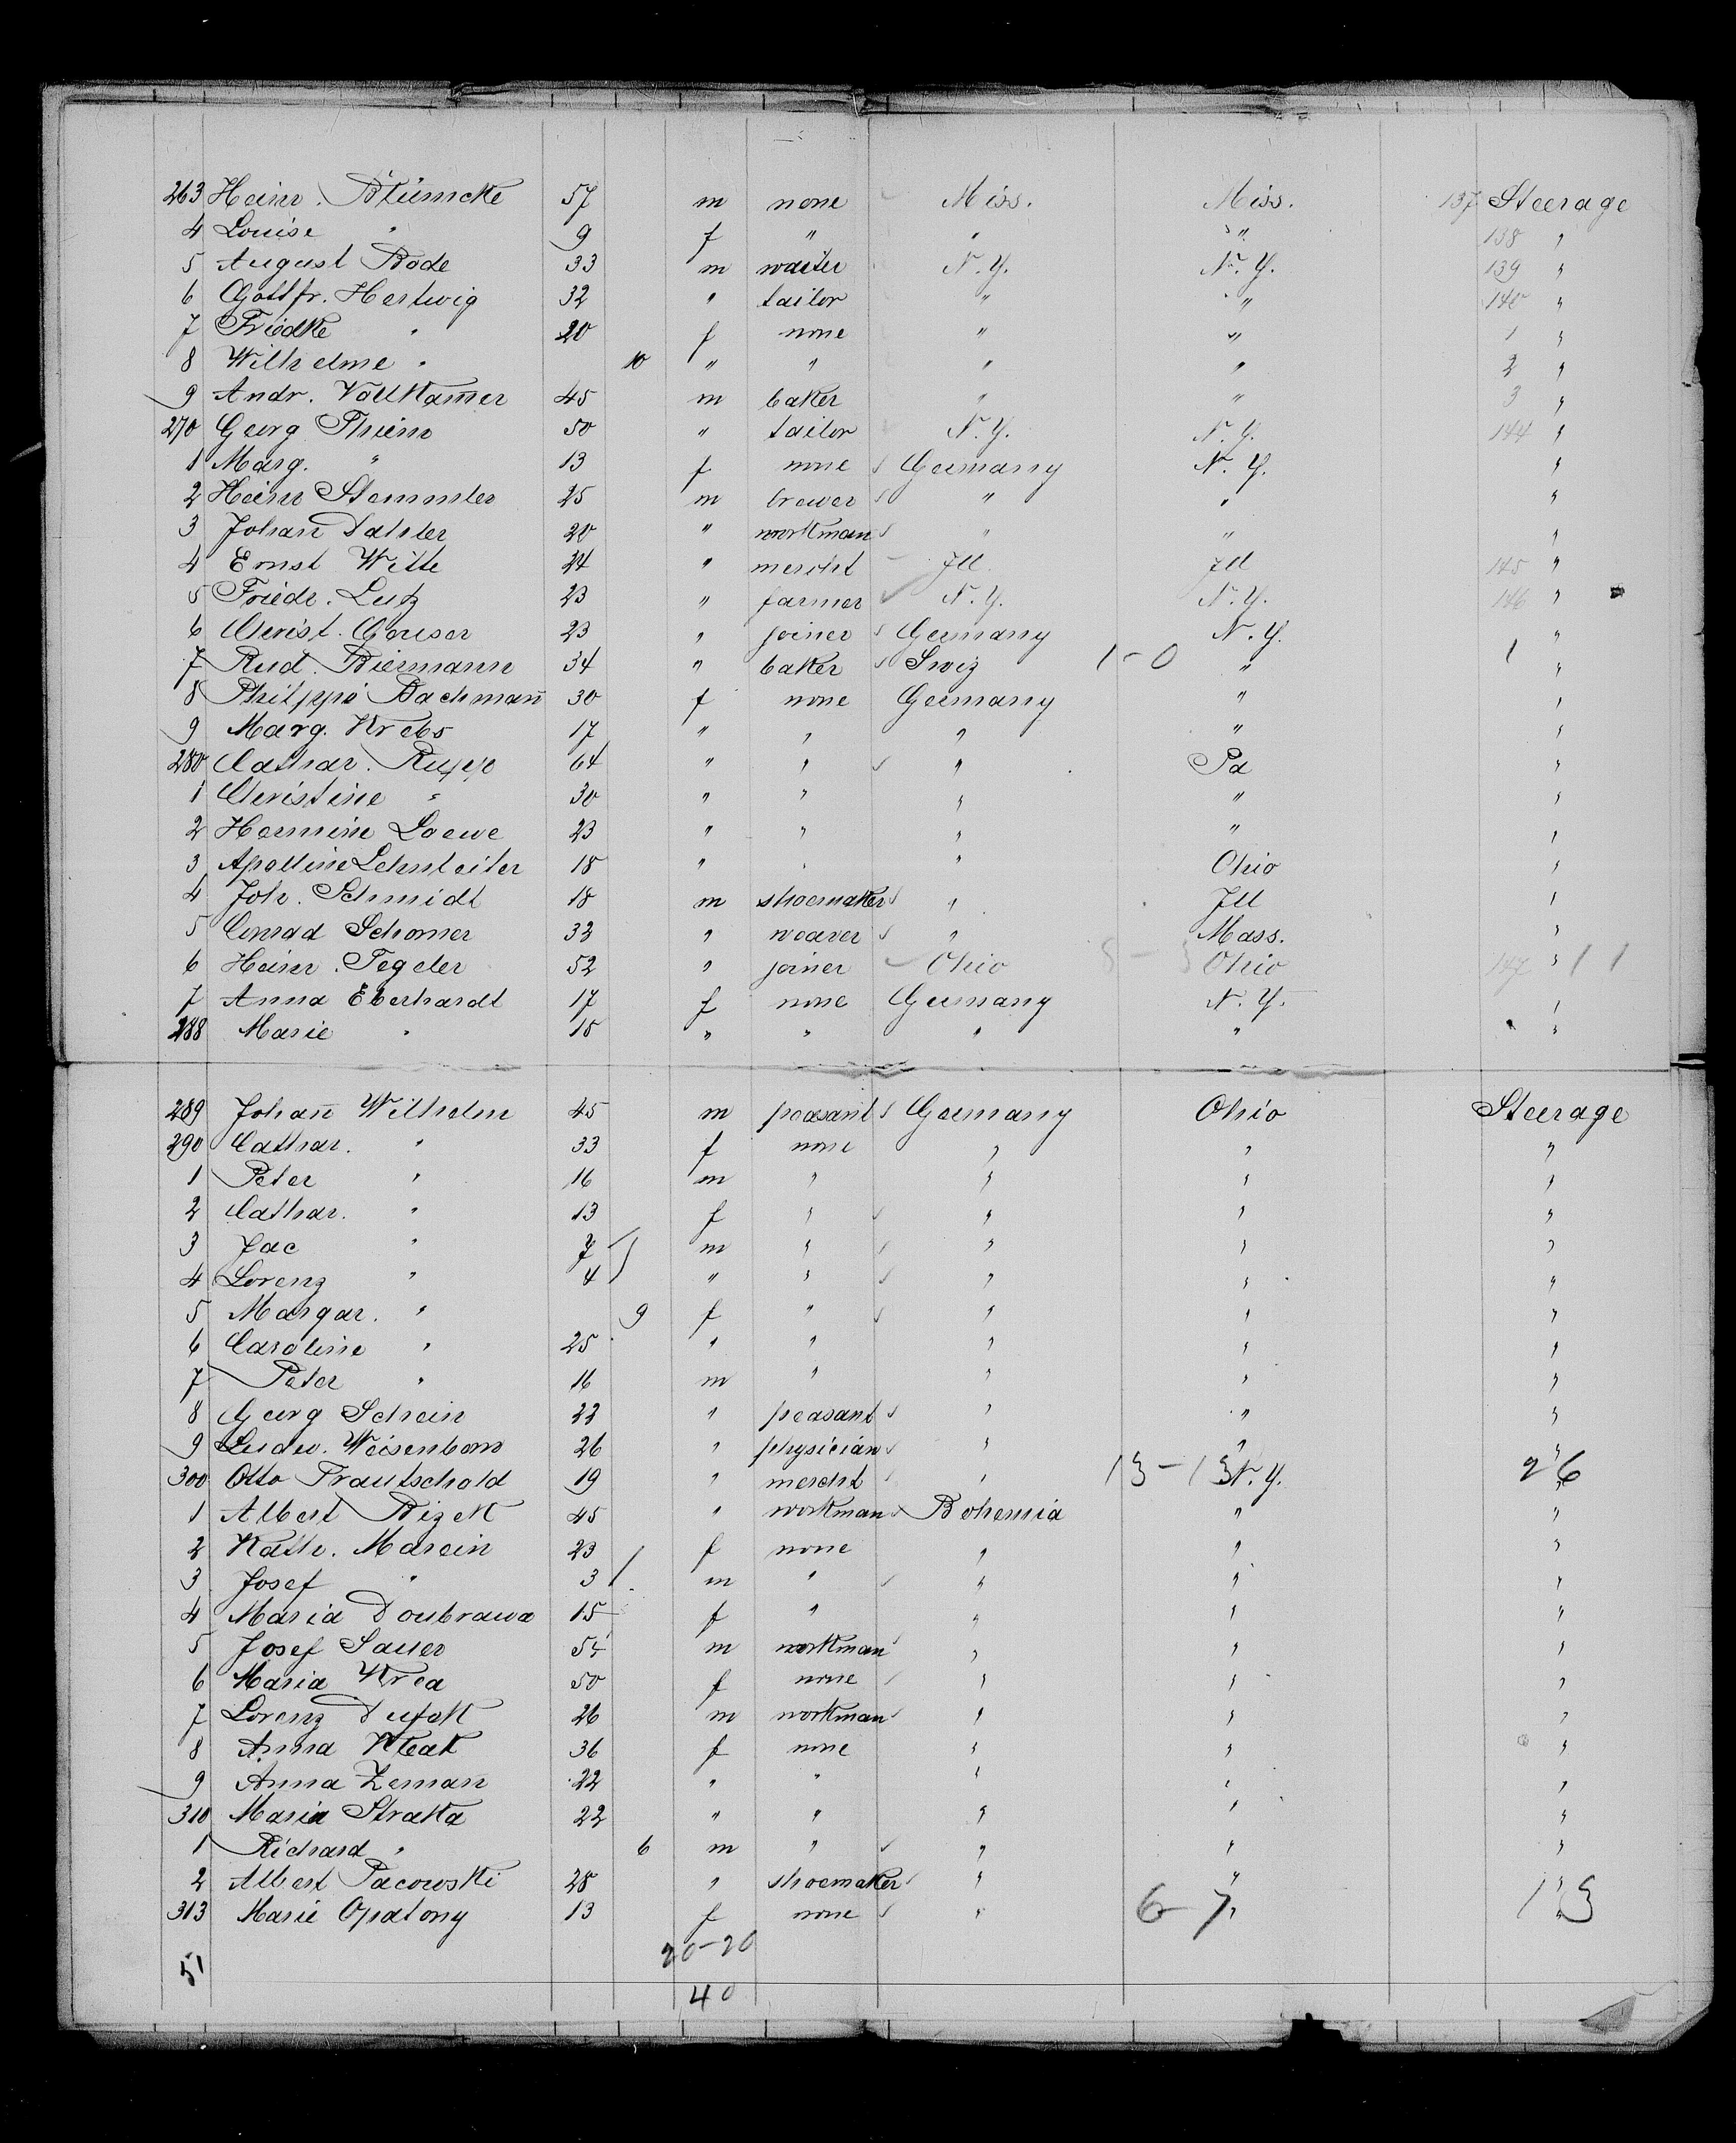 263 Heinr. Blümcke 57 m none Miss. Miss. 137 Steerage
4 Louise " 9 f " " " 138 "
5 August Bode 33 m waiter N.Y. N.Y. 139 "
6 Gottfr. Hertwig 32 " tailor " " 140 "
7 Friedke " 20 f none " " 1 "
8 Wilhelme " 10 " " " " 2 "
9 Andr. Vollkam̅er 45 m baker " " 3 "
270 Georg Thiem 50 " tailor N.Y. N.Y. 144 "
1 Marg. " 13 f none Germany N.Y. "
2 Heinr Stemmler 25 m brewer " " "
3 Johan̅ 20 " workman " " "
4 Ernst Witte 24 " mercht Ill. Ill 145 "
5 Friedr. Lutz 23 " farmer N.Y. N.Y. 146 "
6 Christ. Gauser 23 " joiner Germany N.Y. "
7 Rud. Biermann 34 " baker Swiz 1-0 " 1 "
8 Philippi Bachman̅ 30 f none Germany " "
9 Marg. Krebs 17 " " " " "
280 Cathar. Rupp 64 " " " Pa "
1 Christine " 30 " " " " "
2 Hermine Loewe 23 " " " " "
3 Apolline Lehnleiter 18 " " " Ohio "
4 Joh. Schmidt 18 m shoemaker " Ill "
5 Conrad Schomer 33 " weaver " Mass. "
6 Heinr. Tegeler 52 " joiner Ohio Ohio 147 " 11
7 Anna Eberhardt 17 f none Germany N.Y. "
288 Marie " 15 " " " " "
289 Johan̅ Wilhelm 45 m peasant Germany Ohio Steerage
290 Cathar. " 33 f none " " "
1 Peter " 16 m " " " "
2 Cathar. " 13 f " " " "
3 Jac " 7 m " " " "
4 Lorenz " 4 " " " " "
5 Margar. " 9 f " " " "
6 Caroline " 25 " " " " "
7 Peter " 16 m " " " "
8 Georg Schein 22 " peasant " " "
9 Ludw. Weisenborn 26 " physician " " "
300 Otto Trautschold 19 " mercht " 13-13 N.Y. 26 "
1 Albert Bizek 45 " workman Bohemia " "
2 Kath. Marcin 23 f none " " "
3 Josef " 3 m " " " "
4 Maria Doubrawa 15 f " " " "
5 Josef Sauer 54 m workman " " "
6 Maria Krea 50 f none " " "
7 Lorenz 26 m workman " " "
8 Anna Kleak 36 f none " " "
9 Anna Zeman̅ 22 " " " " "
310 Maria Straka 22 " " " " "
1 Richard " 6 m " " " "
2 Albert Pacowski 28 " shoemaker " " "
313 Marie Opatony 13 f none " 6-7 " 13 "
51 20-20
40